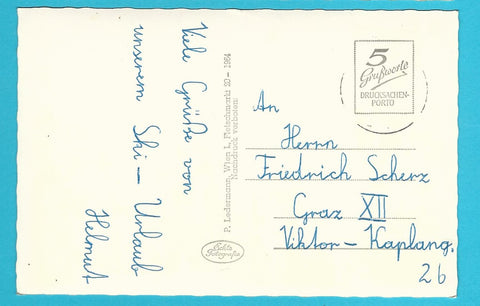 Viele Grüße von
unserem Ski-Urlaub
Helmut
P. Ledermann, Wien I., Fleischmarkt 20 - 1954
Nachdruck verboten
Echte
Fotografie
5
Grußworte
DRUCKSACHEN-
PORTO
An
Herrn
Friedrich Scherz
Graz XII
Viktor-Kaplang.
26